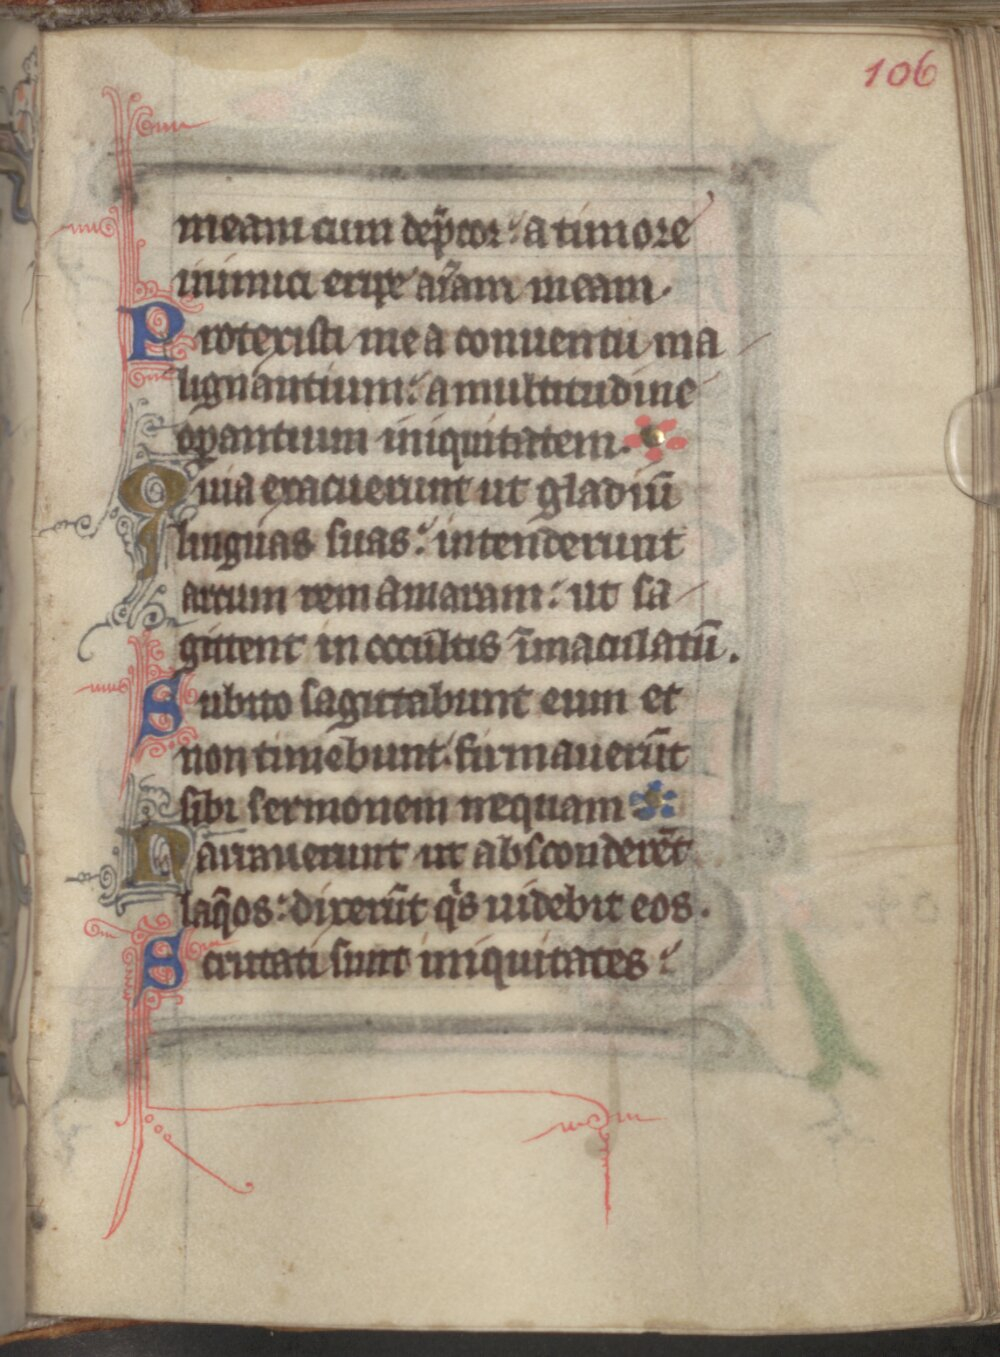 106
meam cum dep̃cor: a timore
inimici eripe ai̅am meam.
Protexisti me a conuentu ma
lignantium: a multitudine
op̃antium iniquitatem.
Quia exacuerunt ut gladiu̅
linguas suas: intenderunt
arcum rem amaram: ut sa
gittent in occultis i̅maculatu̅.
Subito sagittabunt eum et
non timebunt: firmaueru̅t
sibi sermonem nequam
Narrauerunt ut abscondere̅t
laq̃os: dixeru̅t qͥs uidebit eos.
Scrutati sunt iniquitates: